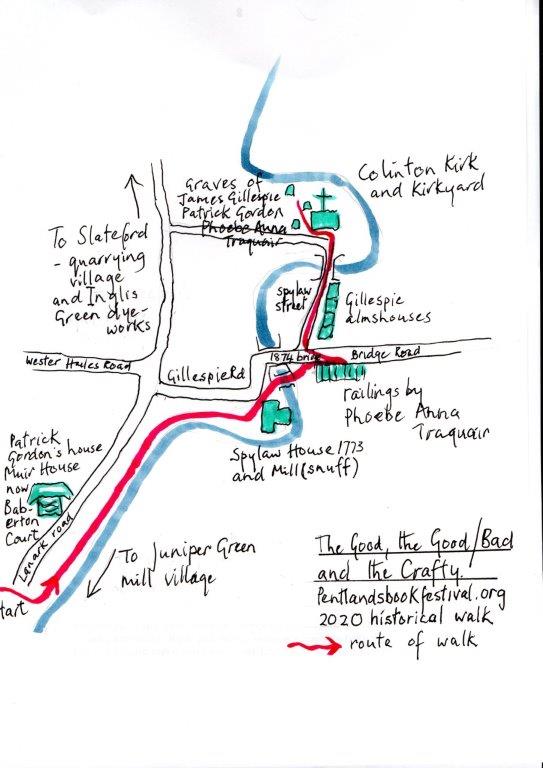 Graves of
James Gillespie
Patrick Gordon
Phoebe Anna
Traquair
Colinton Kirk
and Kirkyard
To Slateford
- quarrying
village
and Inglis
Green dye-
works
Spylaw
Street
Gillespie
almshouses
Wester Hailes Road
Gillespie Rd
1874 bridge
Bridge Road
railings by
Phoebe Anna
Traquair
Spylaw House 1773
and Mill (snuff)
Patrick
Gordon's house
Muir House
now
Bab-
erton
Court
Lanark road
tart
To Juniper Green
mill village
The Good, the Good/Bad
and the Crafty.
Pentlandsbookfestival.org
2020 historical walk
route of walk